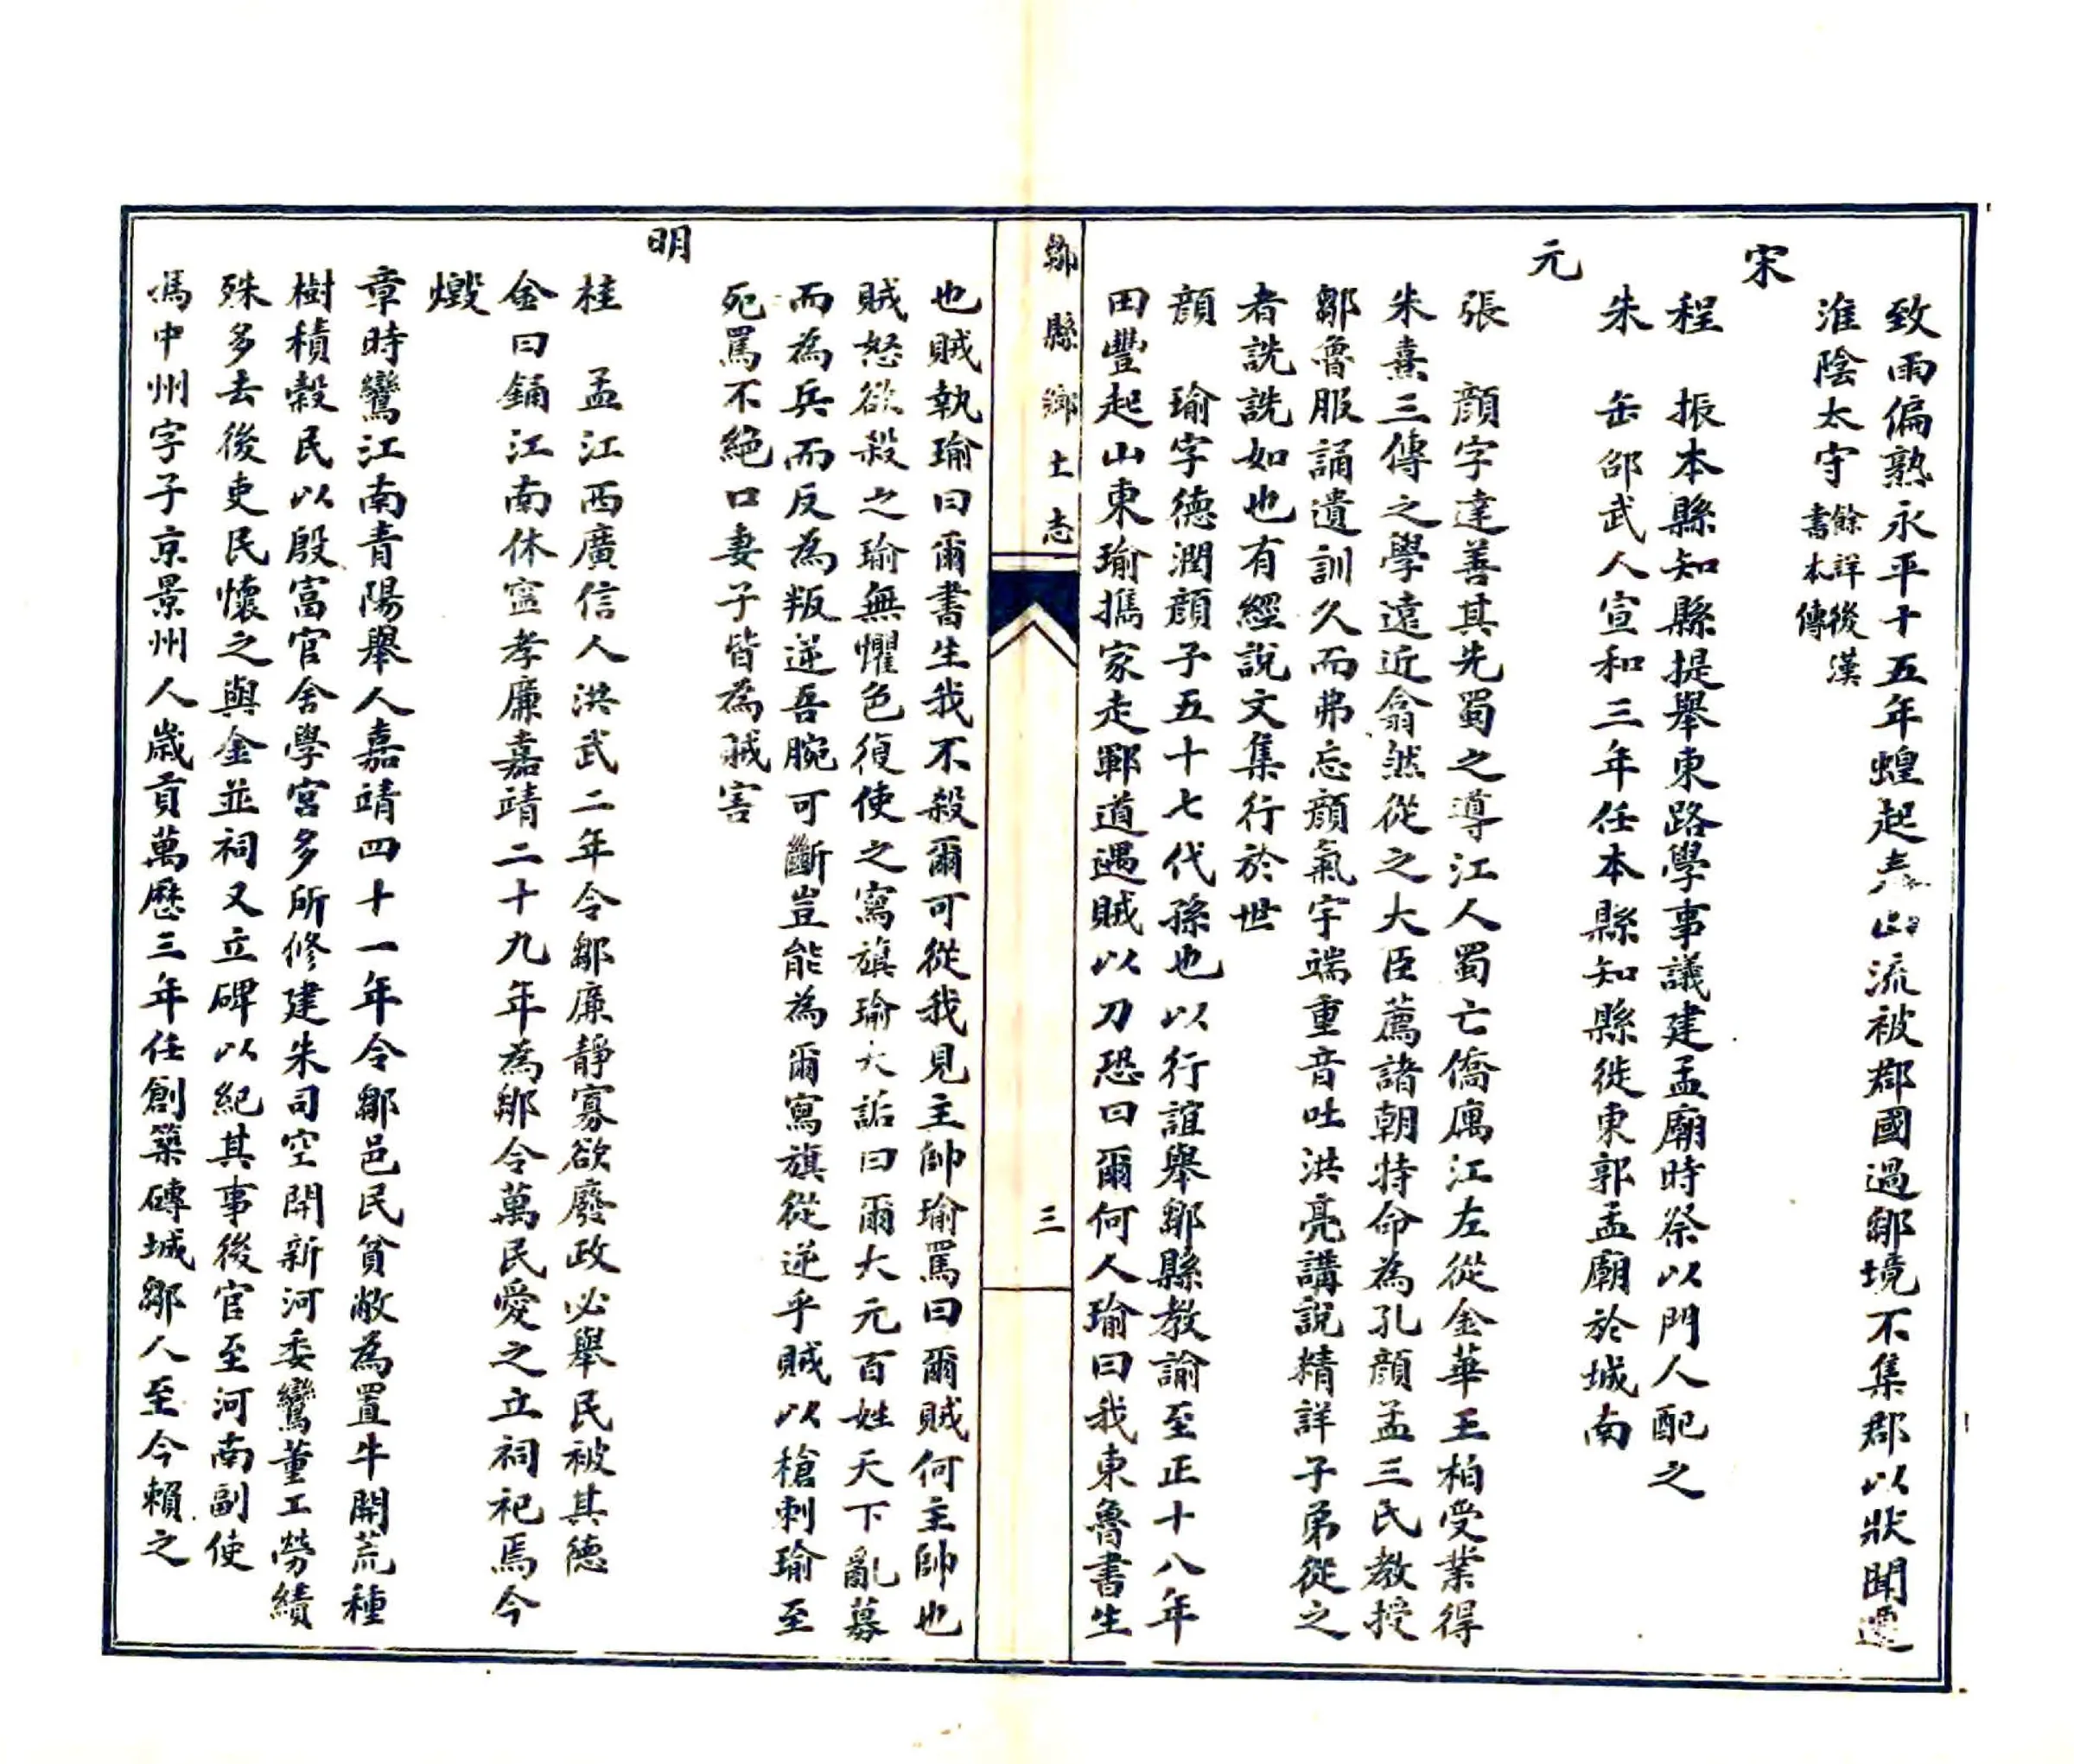 致雨偏熟永平十五年蝗起泰山流被郡國過鄒境不集郡以狀聞遷
淮陰太守餘詳後漢書本傳
宋
程　振本縣知縣提舉東路學事議建孟廟時祭以門人配之
朱　缶邵武人宣和三年任本縣知縣徙東郭孟廟於城南
元
張　顏字達善其先蜀之導江人蜀亡僑寓江左從金華王柏受業得
朱熹三傳之學遠近翕然從之大臣薦諸朝特命為孔顏孟三氏教授
鄒魯服誦遺訓久而弗忘顏氣宇端重音吐洪亮講說精詳子弟從之
者詵詵如也有經說文集行於世
顏　瑜字德潤顏子五十七代孫也以行誼舉鄒縣教諭至正十八年
田豐起山東瑜攜家走鄆道遇賊以刀恐曰爾何人瑜曰我東魯書生
鄒縣鄉土志　三
也賊執瑜曰爾書生我不殺爾可從我見主帥瑜罵曰爾賊何主帥也
賊怒欲殺之瑜無懼色復使之寫旗瑜大詬曰爾大元百姓天下亂募
而為兵而反為叛逆吾腕可斷豈能為爾寫旗從逆乎賊以槍刺瑜至
死罵不絕口妻子皆為賊害
明
桂　孟江西廣信人洪武二年令鄒廉靜寡欲廢政必舉民被其德
金曰銷江南休寧孝廉嘉靖二十九年為鄒令萬民愛之立祠祀焉今
燬
章時鸞江南青陽舉人嘉靖四十一年令鄒邑民貧敝為置牛開荒種
樹積穀民以殷富官舍學宮多所修建朱司空開新河委鸞董工勞績
殊多去後吏民懷之與金並祠又立碑以紀其事後官至河南副使
馮中州字子京景州人歲貢萬歷三年任創築磚城鄒人至今賴之